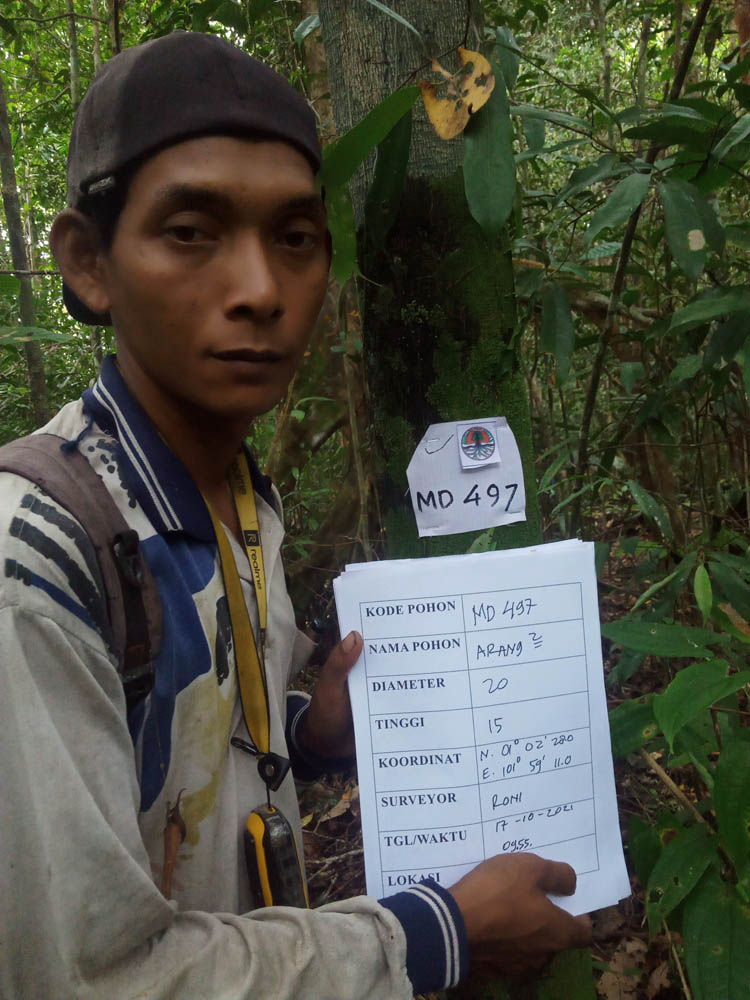 MD 497
realme
KODE POHON MD 497
NAMA POHON ARANG 2
DIAMETER 20
TINGGI 15
KOORDINAT N. 01° 02' 280
E. 101° 59' 11.0
SURVEYOR RONI
TGL/WAKTU 17-10-2021
0955.
LOKASI